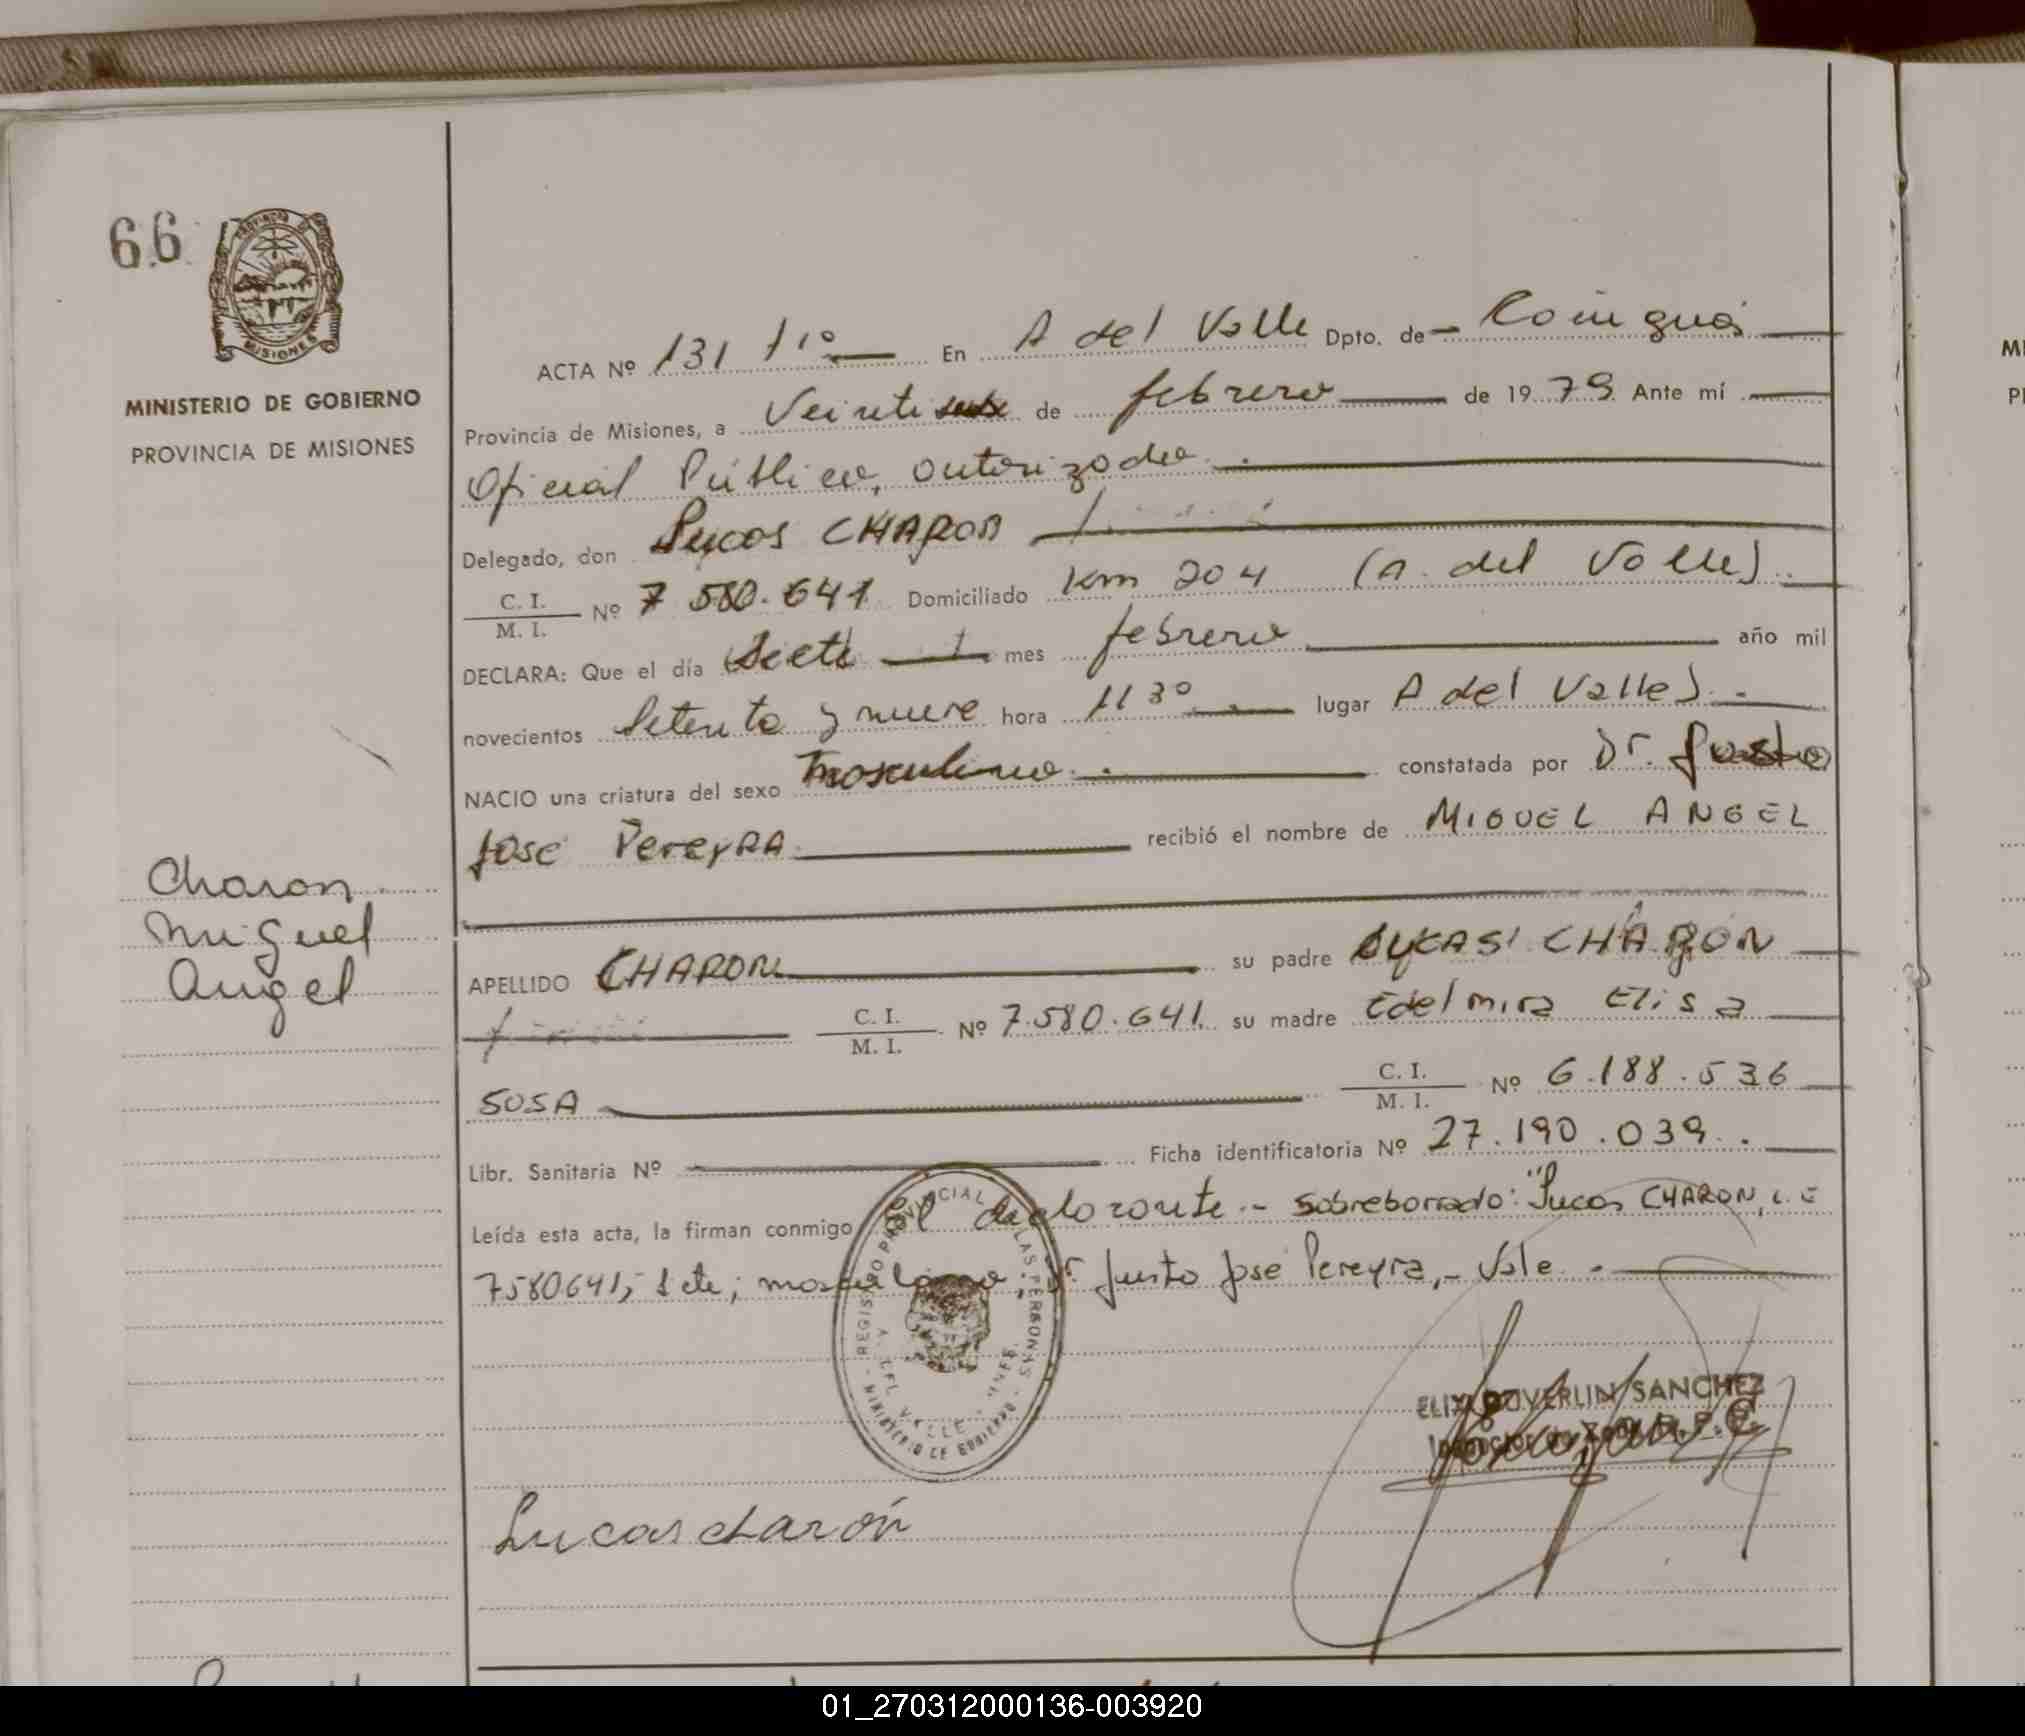 66
PROVINCIA DE
MISIONES
MINISTERIO DE GOBIERNO
PROVINCIA DE MISIONES
ACTA Nº 131 Tº En A del Valle Dpto. de Cainguás
Provincia de Misiones, a Veinti de febrero de 1979 Ante mí
Oficial Público, autorizado.
Delegado, don Lucas CHARON
C. I.
M. I. Nº 7 580.641 Domiciliado Km 204 (A. del Valle)
DECLARA: Que el día Siete mes febrero año mil
novecientos Setenta y nueve hora 11 30 lugar A del Valle).
NACIO una criatura del sexo masculino. constatada por Dr. Justo
Jose PereyRA recibió el nombre de MIGUEL ANGEL
Charon
Miguel
Angel
APELLIDO CHARON su padre LUCAS CHARON
C. I.
M. I. Nº 7.580.641 su madre Edelmira Elisa
SOSA C. I.
M. I. Nº 6.188.536
Libr. Sanitaria Nº Ficha identificatoria Nº 27.190.039.
Leída esta acta, la firman conmigo el declarante.- sobreborrado: "Lucas CHARON, L.E
7580641; Siete; masculino; Dr. Justo Jose Pereyra,- Vale.
REGISTRO PROVINCIAL DE LAS PERSONAS
MINISTERIO DE GOBIERNO
A. DEL VALLE - MNES.
SANCHEZ
Lucas charón
01_270312000136-003920